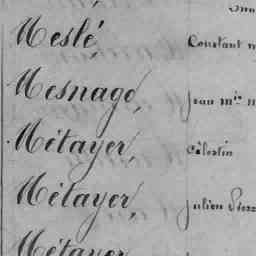 Meslé, Constant
Mesnage, Jean Mie
Métayer, Célestin
Métayer, Julien
Métayer